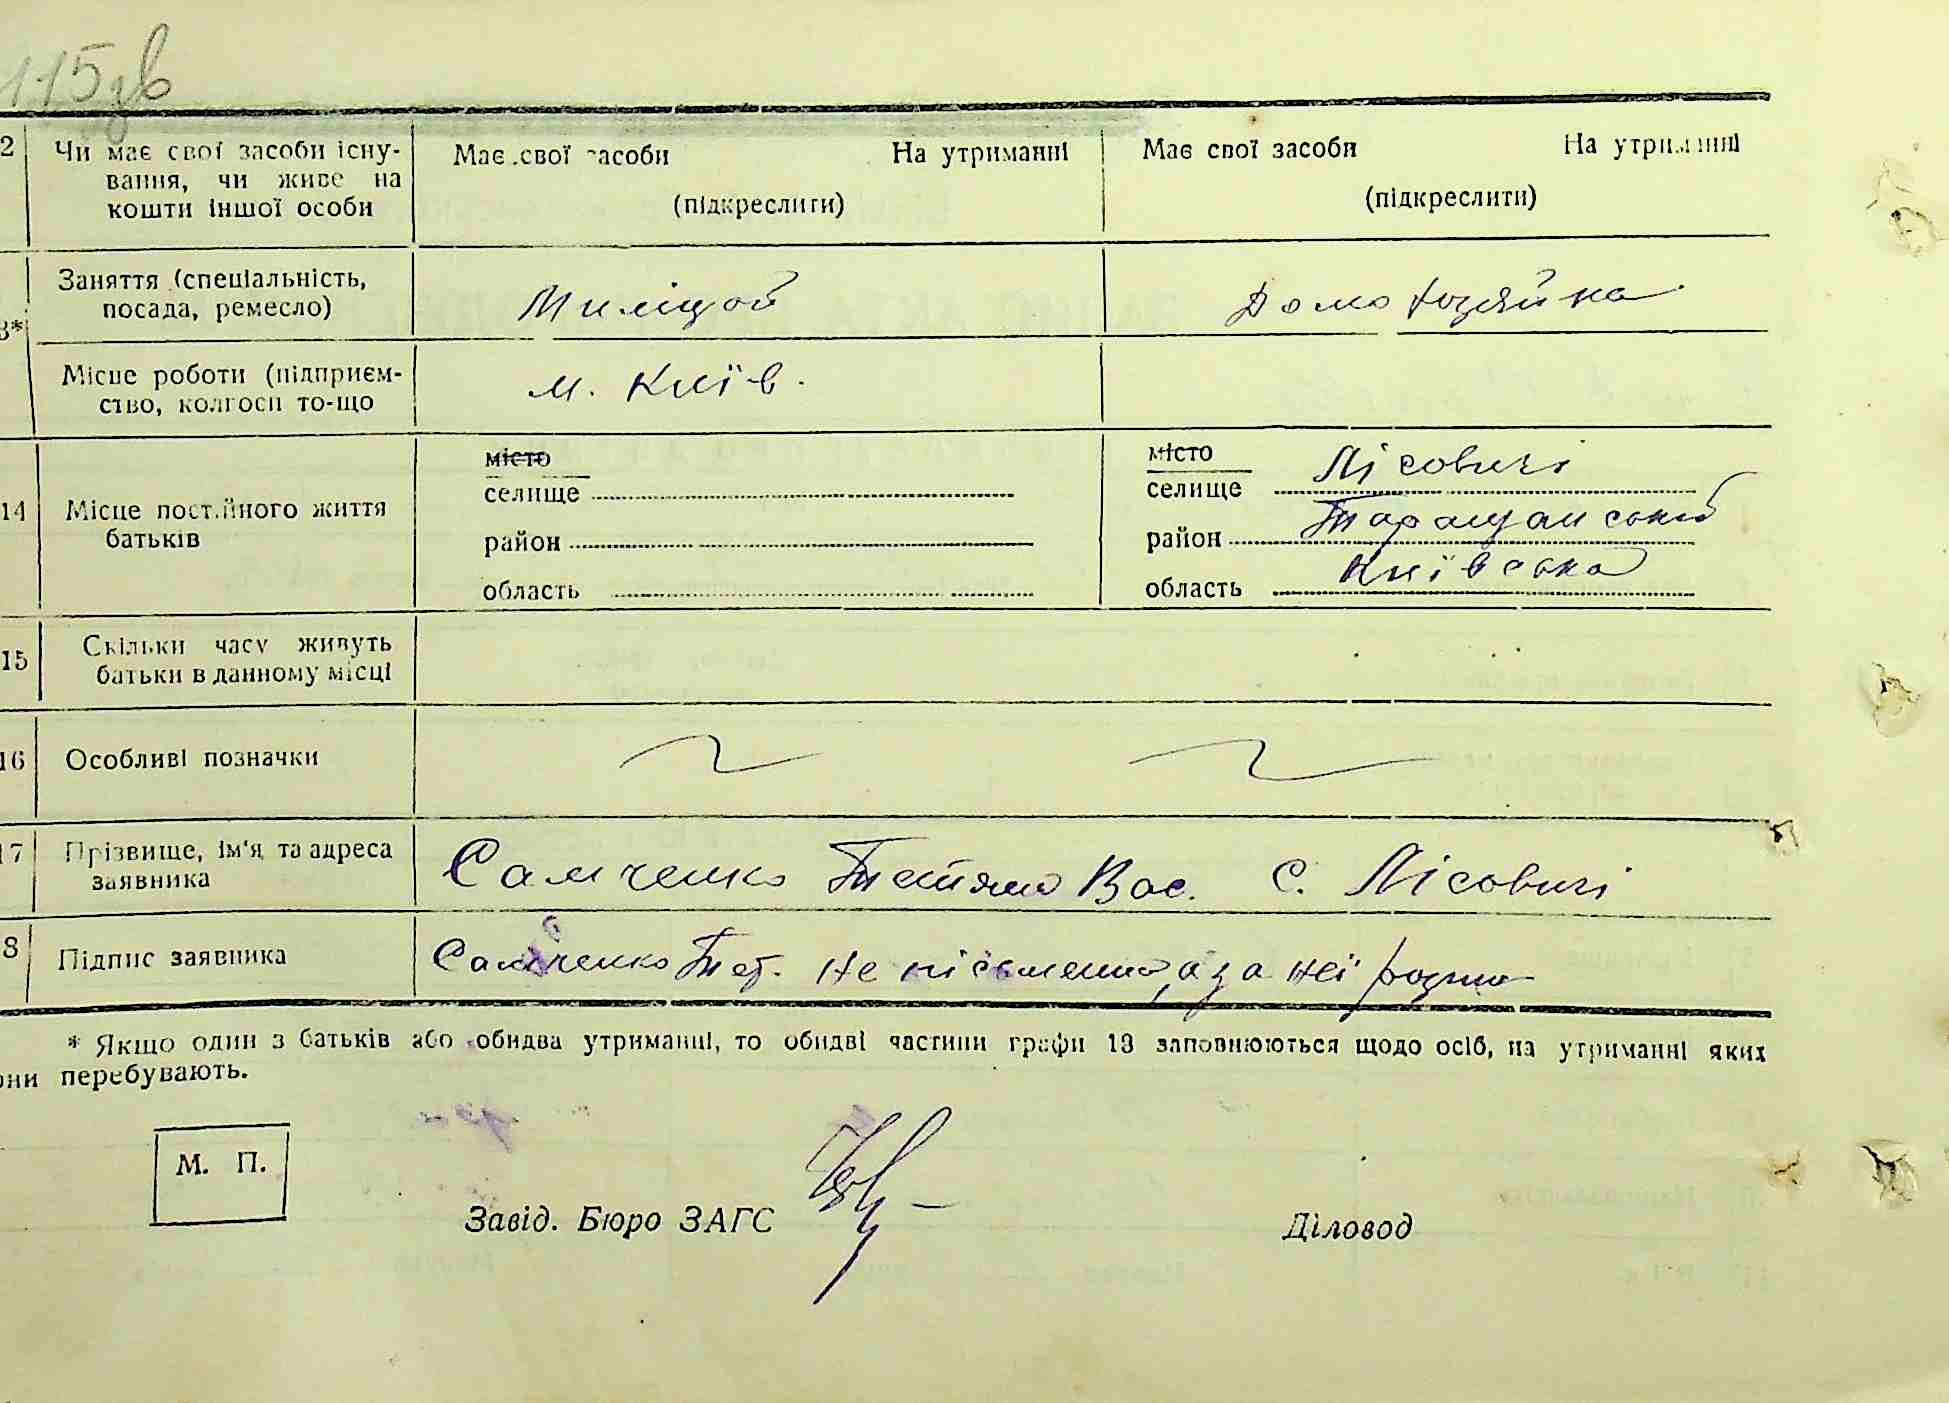 115зв
2 Чи має свої засоби існу- Має свої засоби На утриманні Має свої засоби На утриманні
вання, чи живе на
кошти іншої особи (підкреслити) (підкреслити)
Заняття (спеціальність,
посада, ремесло) Міліцой Домохозяйка
3*
Місце роботи (підприєм- м. Київ.
ство, колгосп то-що
місто місто Лісовичі
селище селище
14 Місце постійного життя Таращанський
батьків район район
Київська
область область
15 Скільки часу живуть
батьки в данному місці
16 Особливі позначки
17 Прізвище, ім'я та адреса Самченко Тетяна Вас. с. Лісовичі
заявника
8 Підпис заявника Самченко Тет. не пісьменна, а за неї
* Якщо один з батьків або обидва утриманні, то обидві частини графи 13 заповнюються щодо осіб, на утриманні яких
они перебувають.
М. П.
Завід. Бюро ЗАГС Діловод